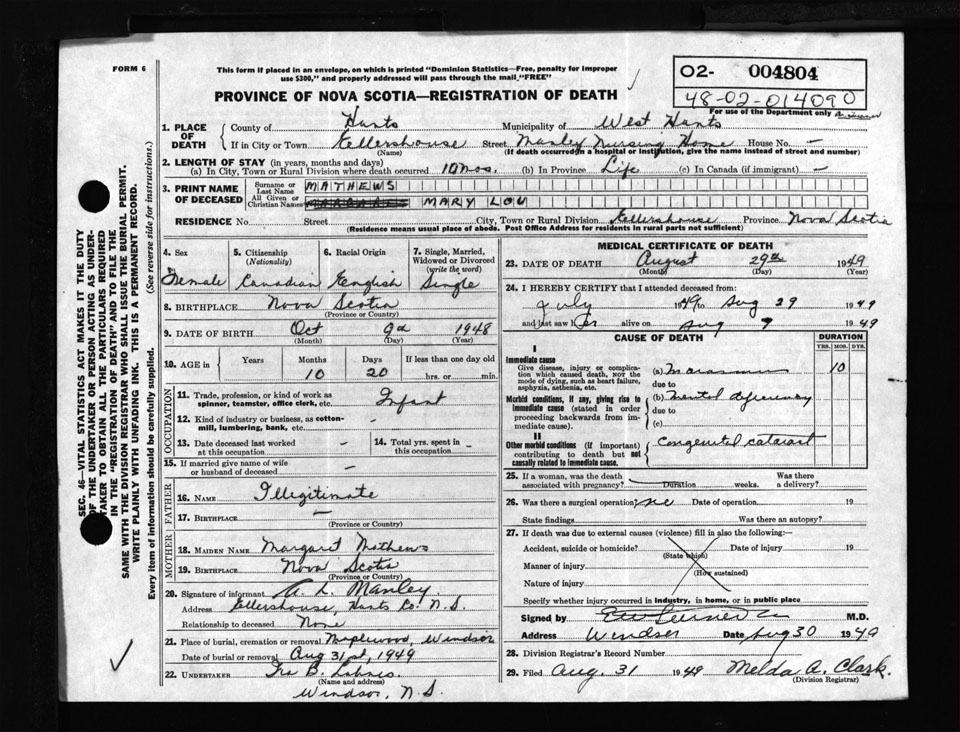 FORM 6
This form if placed in an envelope, on which is printed "Dominion Statistics—Free, penalty for improper
use $300," and properly addressed will pass through the mail "FREE"
02- 004804
48-02-014090
For use of the Department only
PROVINCE OF NOVA SCOTIA—REGISTRATION OF DEATH
1. PLACE OF DEATH
County of Hants Municipality of West Hants
If in City or Town Ellershouse Street Manley Nursing Home House No. —
(Name) (If death occurred in a hospital or institution, give the name instead of street and number)
2. LENGTH OF STAY (in years, months and days)
(a) In City, Town or Rural Division where death occurred 10 mos. (b) In Province Life (c) In Canada (if immigrant) —
3. PRINT NAME OF DECEASED
Surname or Last Name MATHEWS
All Given or Christian Names MARY LOU
RESIDENCE No. Street City, Town or Rural Division Ellershouse Province Nova Scotia
(Residence means usual place of abode. Post Office Address for residents in rural parts not sufficient)
4. Sex Female
5. Citizenship (Nationality) Canadian
6. Racial Origin English
7. Single, Married, Widowed or Divorced (write the word) Single
8. BIRTHPLACE Nova Scotia
(Province or Country)
9. DATE OF BIRTH Oct 9th 1948
(Month) (Day) (Year)
10. AGE in Years Months Days If less than one day old
10 20 hrs. or min.
OCCUPATION
11. Trade, profession, or kind of work as spinner, teamster, office clerk, etc. Infant
12. Kind of industry or business, as cotton-mill, lumbering, bank, etc. —
13. Date deceased last worked at this occupation —
14. Total yrs. spent in this occupation —
15. If married give name of wife or husband of deceased —
FATHER
16. NAME Illegitimate
17. BIRTHPLACE —
(Province or Country)
MOTHER
18. MAIDEN NAME Margaret Mathews
19. BIRTHPLACE Nova Scotia
(Province or Country)
20. Signature of informant A. L. Manley
Address Ellershouse, Hants Co. N.S.
Relationship to deceased None
21. Place of burial, cremation or removal Maplewood, Windsor
Date of burial or removal Aug 31st, 1949
22. UNDERTAKER Ira B.
(Name and address)
Windsor, N.S.
MEDICAL CERTIFICATE OF DEATH
23. DATE OF DEATH August 29th 1949
(Month) (Day) (Year)
24. I HEREBY CERTIFY that I attended deceased from:
July 1949 to Aug 29 1949
and last saw her alive on Aug 9 1949
CAUSE OF DEATH
DURATION
YRS. MOS. DYS.
I
Immediate cause
Give disease, injury or complication which caused death, NOT the mode of dying, such as heart failure, asphyxia, asthenia, etc.
(a) Marasmus 10
due to
Morbid conditions, if any, giving rise to immediate cause (stated in order proceeding backwards from immediate cause).
(b) Mental deficiency
due to
(c)
II
Other morbid conditions (if important) contributing to death but not causally related to immediate cause.
Congenital cataract
25. If a woman, was the death associated with pregnancy? Duration weeks. Was there a delivery?
26. Was there a surgical operation? no Date of operation 19
State findings Was there an autopsy?
27. If death was due to external causes (violence) fill in also the following:—
Accident, suicide or homicide? Date of injury 19
(State which)
Manner of injury
(How sustained)
Nature of injury
Specify whether injury occurred in industry, in home, or in public place
Signed by M.D.
Address Windsor Date Aug 30 1949
28. Division Registrar's Record Number
29. Filed Aug. 31 1949 Melda A. Clark.
(Division Registrar)
SEC. 46—VITAL STATISTICS ACT MAKES IT THE DUTY
OF THE UNDERTAKER OR PERSON ACTING AS UNDER-
TAKER TO OBTAIN ALL THE PARTICULARS REQUIRED
IN THE "REGISTRATION OF DEATH" AND TO FILE THE
SAME WITH THE DIVISION REGISTRAR WHO SHALL ISSUE THE BURIAL PERMIT.
WRITE PLAINLY WITH UNFADING INK. THIS IS A PERMANENT RECORD.
Every item of information should be carefully supplied. (See reverse side for instructions.)